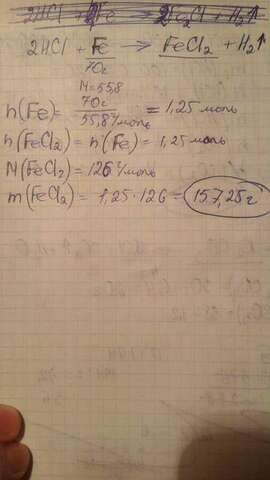 2HCl + Fe → FeCl₂ + H₂↑
70г
M=55,8
n(Fe) = 70г / 55,8г/моль = 1,25 моль
n(FeCl₂) = n(Fe) = 1,25 моль
M(FeCl₂) = 126 г/моль
m(FeCl₂) = 1,25·126 = 157,25г